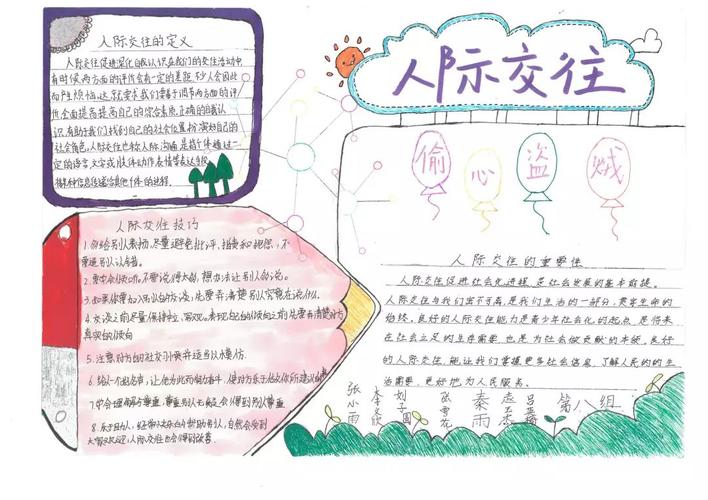 人际交往的定义
人际交往促进深化自我认识在我们的交往活动中
有时候两方面的评价会有一定的差距,不少人会因此
而产生烦恼,这就要求我们要善于调节两方面的评
价全面提高提高自己的综合素质,正确的自我认
识,有助于我们找到自己的社会位置,扮演好自己的
社会角色,人际交往也称人际沟通,是指个体通过一
定的语言,文字或肢体动作、表情等表达手段
将某种信息传递给其他个体的过程.
人际交往
偷 心 盗 贼
人际交往技巧
1.多给别人鼓励,尽量避免批评、指责和抱怨,不
要逼别人认错。
2.要学会倾听.不要说得太多,想办法让别人多说。
3.如果你要加入别人的交谈,先要弄清楚别人究竟在说什么。
4.交谈之前尽量保持中立、客观。表明自己的倾向之前先要弄清楚对方
真实的倾向
5.注意对方的社交习惯并适当以模仿.
6.给人一个好名声,让他为此而努力奋斗,
7.学会理解与尊重,尊重别人
8.乐于助人,
人际交往也会得到改善.
人际交往的重要性
人际交往促进社会化进程,是社会发展的基本前提。
人际交往与我们密不可分,是我们生活的一部分,贯穿生命的
始终。良好的人际交往能力是青少年社会化的起点,是将来
在社会立足的生存需要,也是为社会做贡献的本领。良好
的人际交往,能让我们掌握更多社会信息,了解人民的的生
活需要,更好地为人民服务。
张小雨 李 刘子 张雪 秦雨 吕 第八组